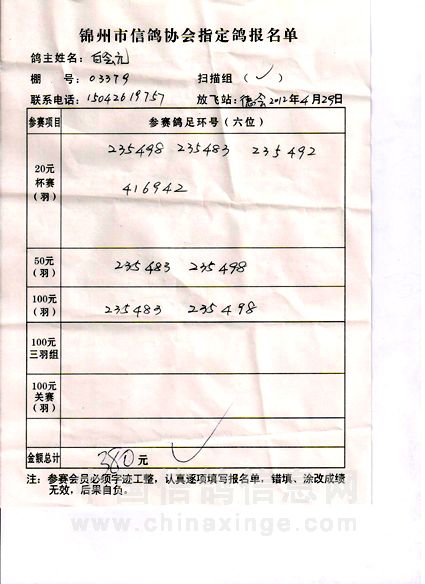 锦州市信鸽协会指定鸽报名单
鸽主姓名：白会元
棚 号：03379 扫描组（✓）
联系电话：15042619757 放飞站：德会2012年4月29日
参赛项目 参赛鸽足环号（六位）
20元杯赛（羽） 235498 235483 235492
416942
50元（羽） 235483 235498
100元（羽） 235483 235498
100元三羽组
100元关赛（羽）
金额总计 380元 ✓
注：参赛会员必须字迹工整，认真逐项填写报名单，错填、涂改成绩
无效，后果自负。
中国信鸽信息网
www.chinaxinge.com